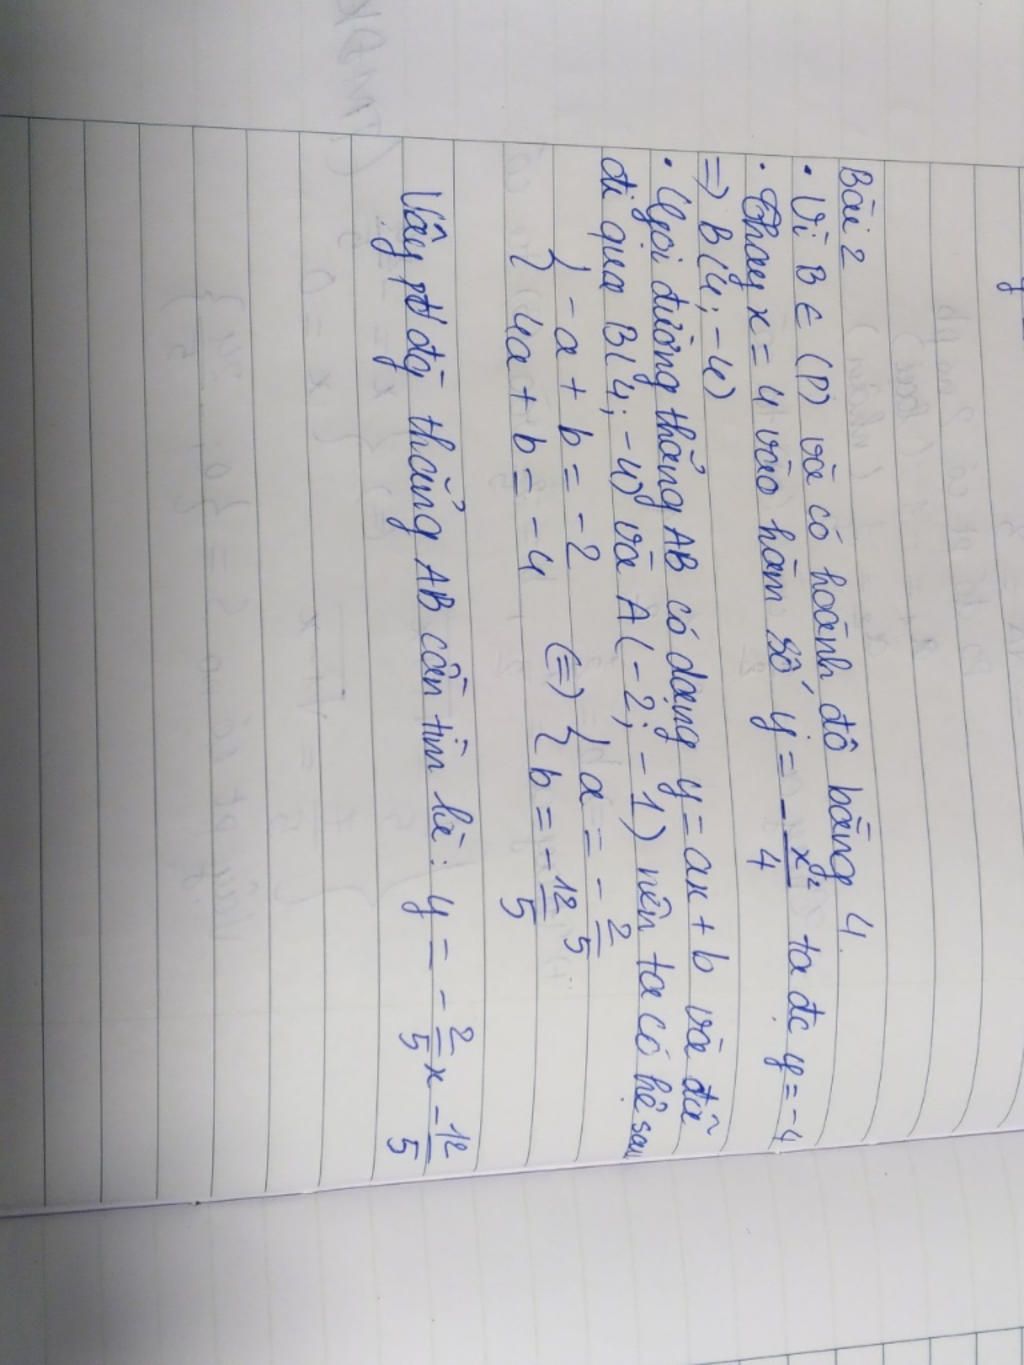 Bài 2
• Vì B ∈ (P) và có hoành độ bằng 4.
• Thay x = 4 vào hàm số y = -x²/4 ta đc y = -4
=> B(4; -4)
• Gọi đường thẳng AB có dạng y = ax + b và đã
đi qua B(4; -4) và A(-2; -1) nên ta có hệ sau
{ -a + b = -2
{ 4a + b = -4 <=> { a = -2/5
{ b = -12/5
Vậy pt đg thẳng AB cần tìm là: y = -2/5x - 12/5